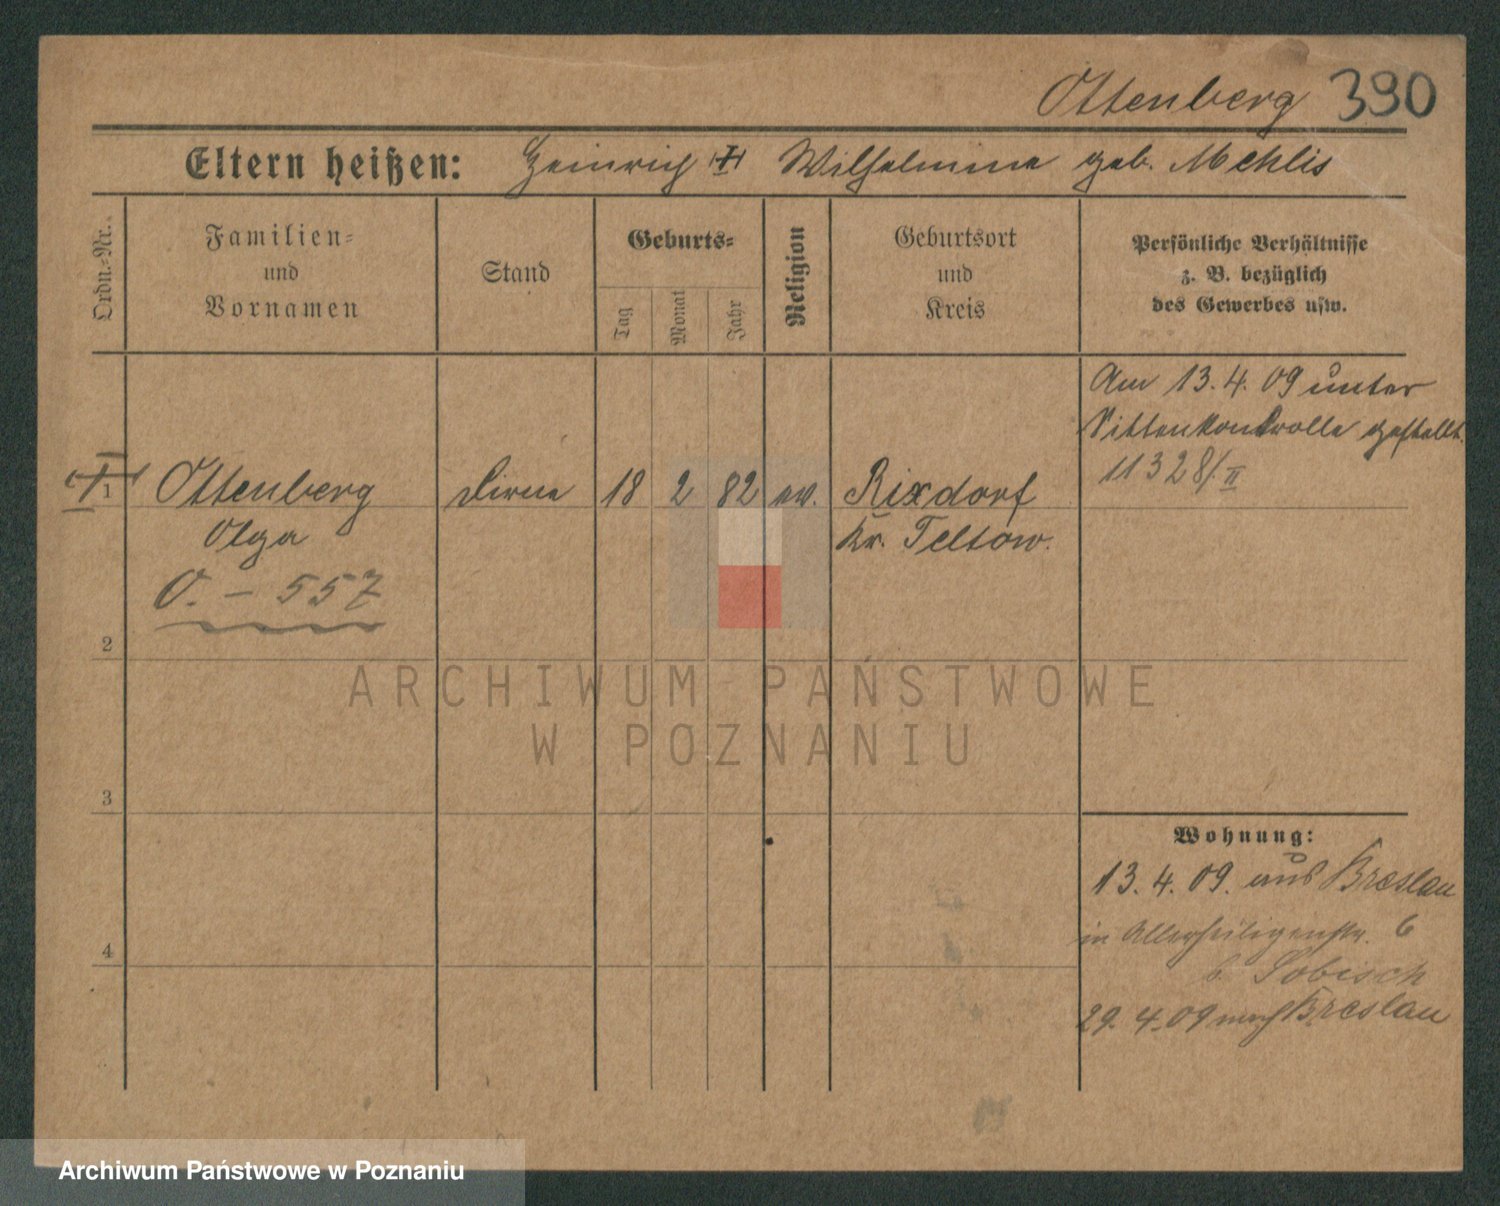 Ottenberg 390
Eltern heißen: Heinrich Wilhelmine geb. Mehlis
Ordn.-Nr.
Familien-
und
Vornamen
Stand
Geburts-
Tag
Monat
Jahr
Religion
Geburtsort
und
Kreis
Persönliche Verhältnisse
z. B. bezüglich
des Gewerbes usw.
Am 13.4.09 unter
Sittenkontrolle gestellt.
11328/II
1 Ottenberg Dirne 18 2 82 ev. Rixdorf
Olga Kr. Teltow.
O. - 557
2
ARCHIWUM PAŃSTWOWE
W POZNANIU
3
Wohnung:
13.4.09. aus Breslau
in Allerheiligenstr. 6
b. Sobisch
4
29.4.09 nach Breslau
Archiwum Państwowe w Poznaniu